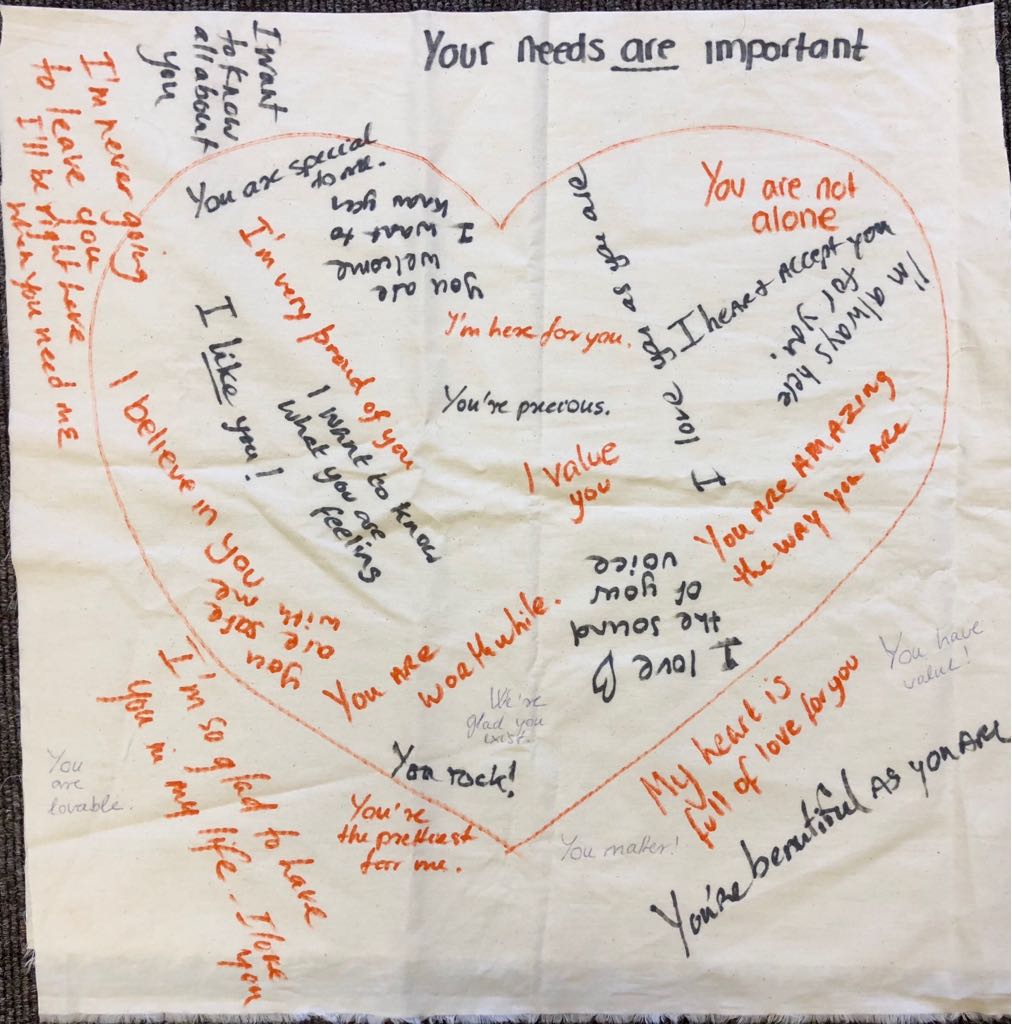 Your needs are important
I want
to know
all about
you
I'm never going
to leave you
I'll be right here
when you need me
You are special
to me.
You are
welcome
I want to
know you
I'm very proud of you
I like you!
I want to know
what you are
feeling
I believe in you
you
are safe
with me
I'm here for you.
You're precious.
I value
you
I love you as you are
You are not
alone
I hear + Accept you
I'm always here
for you.
You ARE AMAZING
the way you ARE
I love
the sound
of your
voice
You ARE
worthwhile.
We're
glad you
exist.
You rock!
You're
the prettiest
for me.
I'm so glad to have
you in my life. I love
you
You
are
lovable.
You matter!
My heart is
full of love for you
You have
value!
You're beautiful AS you ARE